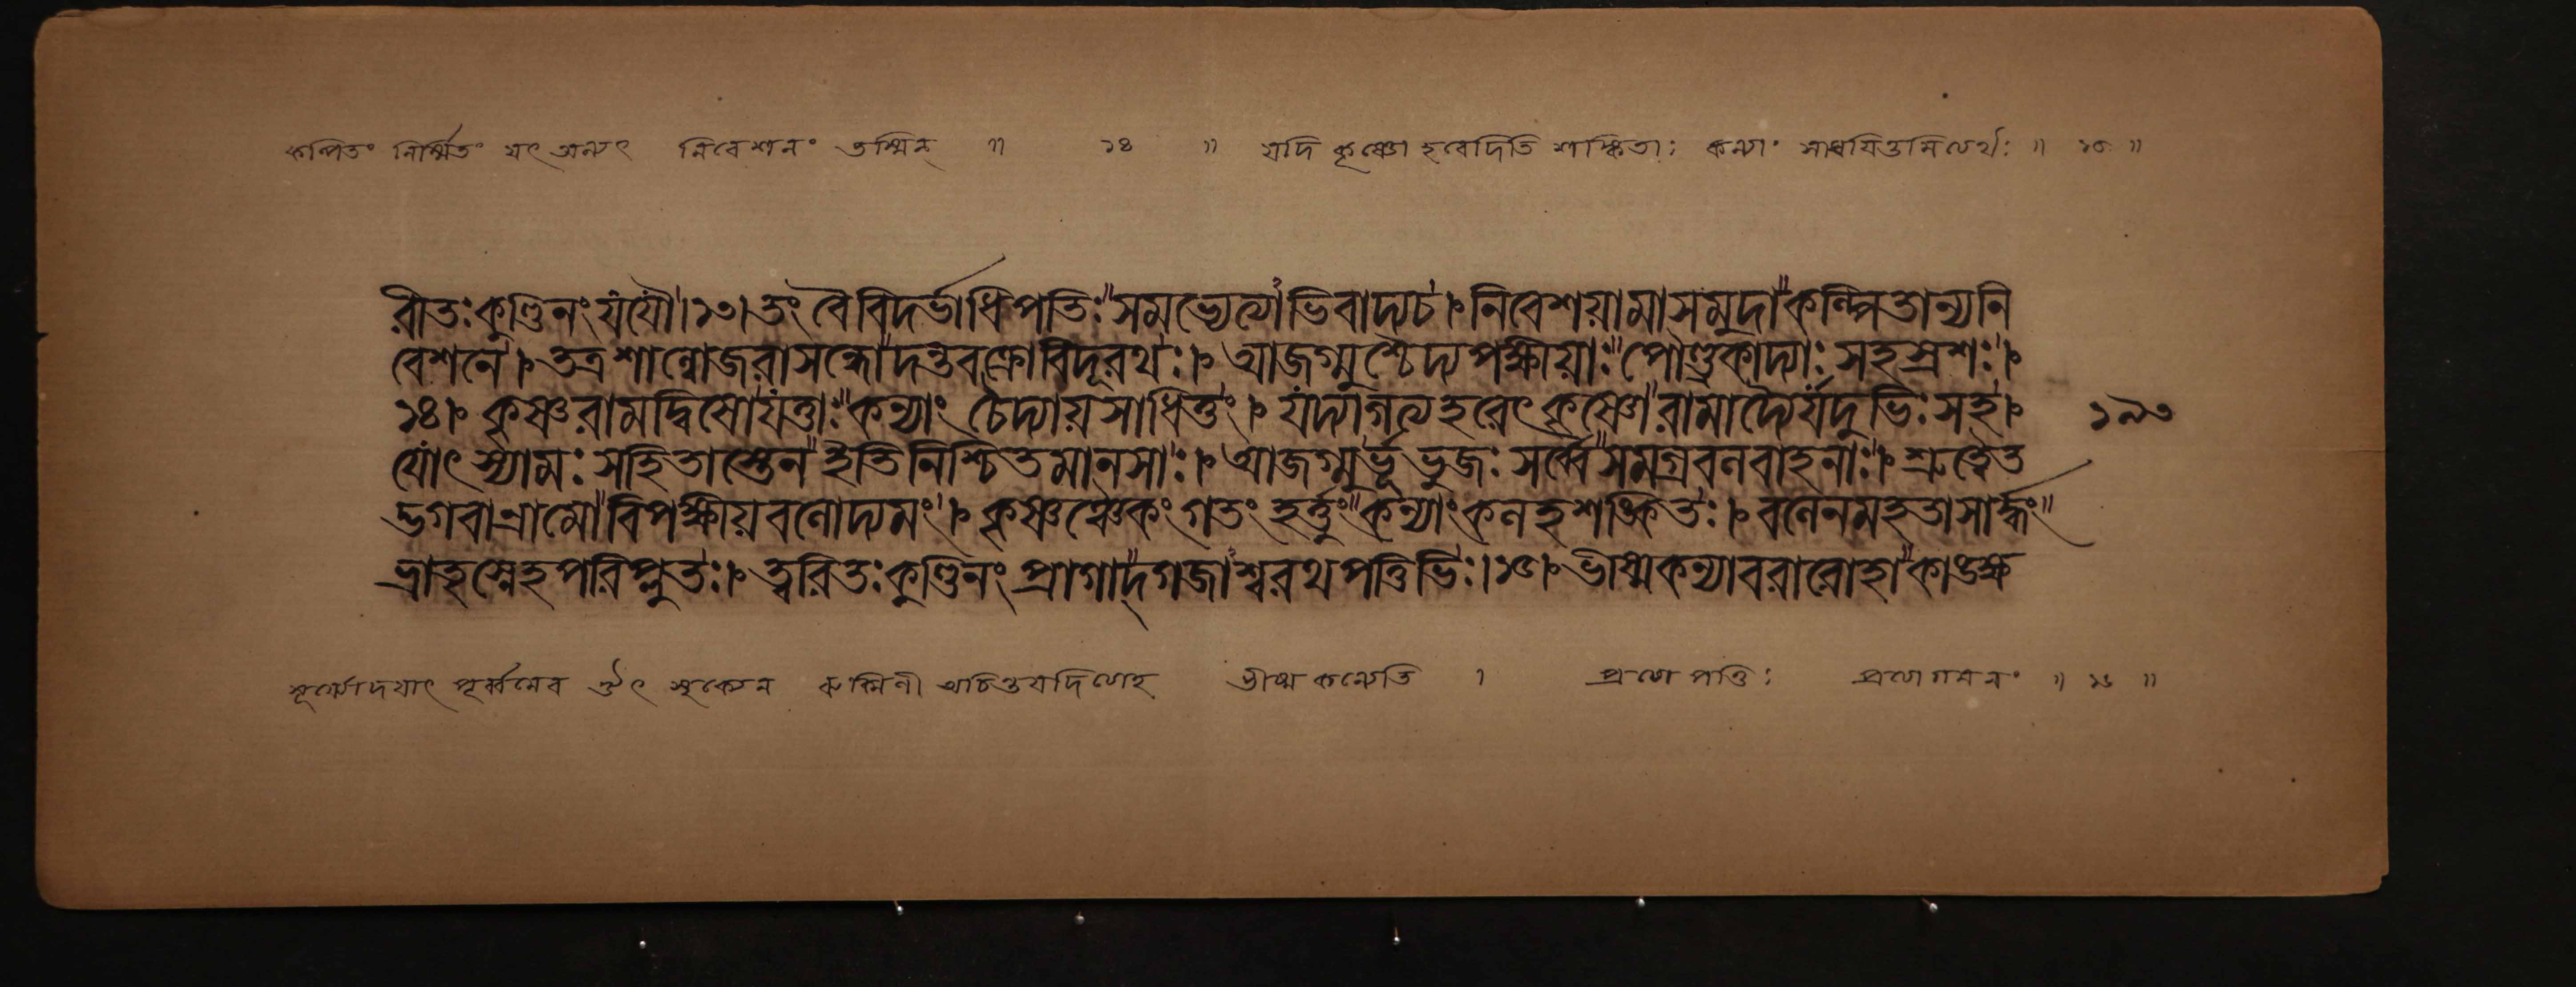 কল্পিতং নির্ম্মিতং যৎ অন্যৎ নিবেশনং তস্মিন্ ॥ ১৪ ॥ যদি কৃষ্ণো হরেদিতি শঙ্কিতাঃ কন্যাং সাধয়িতুমিত্যর্থঃ ॥ ১৫ ॥
রীতঃ কুণ্ডিনং যযৌ।১৩। তং বৈ বিদর্ভাধিপতিঃ" সমভ্যেত্যাভিবাদ্য চ। নিবেশয়ামাস মুদা" কল্পিতান্যনি
বেশনে। তত্র শাল্বো জরাসন্ধো" দন্তবক্রো বিদূরথঃ। আজগ্মুশ্চৈদ্যপক্ষীয়াঃ" পৌণ্ড্রকাদ্যাঃ সহস্রশঃ।
১৪। কৃষ্ণরামদ্বিষো যত্তাঃ" কন্যাং চৈদ্যায় সাধিতুং। যদ্যাগত্য হরেৎ কৃষ্ণো" রামাদ্যৈর্যদুভিঃ সহ। ১৯৩
যোৎস্যামঃ সহিতাস্তেন" ইতি নিশ্চিতমানসাঃ। আজগ্মুর্ভূভুজঃ সর্ব্বে" সমগ্রবলবাহনাঃ। শ্রুত্বৈত
দ্ভগবান্রামো" বিপক্ষীয়বলোদ্যমং। কৃষ্ণঞ্চৈকং গতং হর্ত্তুং" কন্যাং কলহশঙ্কিতঃ। বলেন মহতা সার্দ্ধং"
ভ্রাতৃস্নেহপরিপ্লুতঃ। ত্বরিতঃ কুণ্ডিনং প্রাগাদ্" গজাশ্বরথপত্তিভিঃ।১৫। ভীষ্মকন্যা বরারোহা" কাঙক্ষ
সূর্য্যোদয়াৎ পূর্ব্বমেব ঔৎসুক্যেন রুক্মিণী অচিন্তয়দিত্যাহ ভীষ্মকন্যেতি । প্রত্যাপত্তিঃ প্রত্যাগমনং ॥ ১৬ ॥